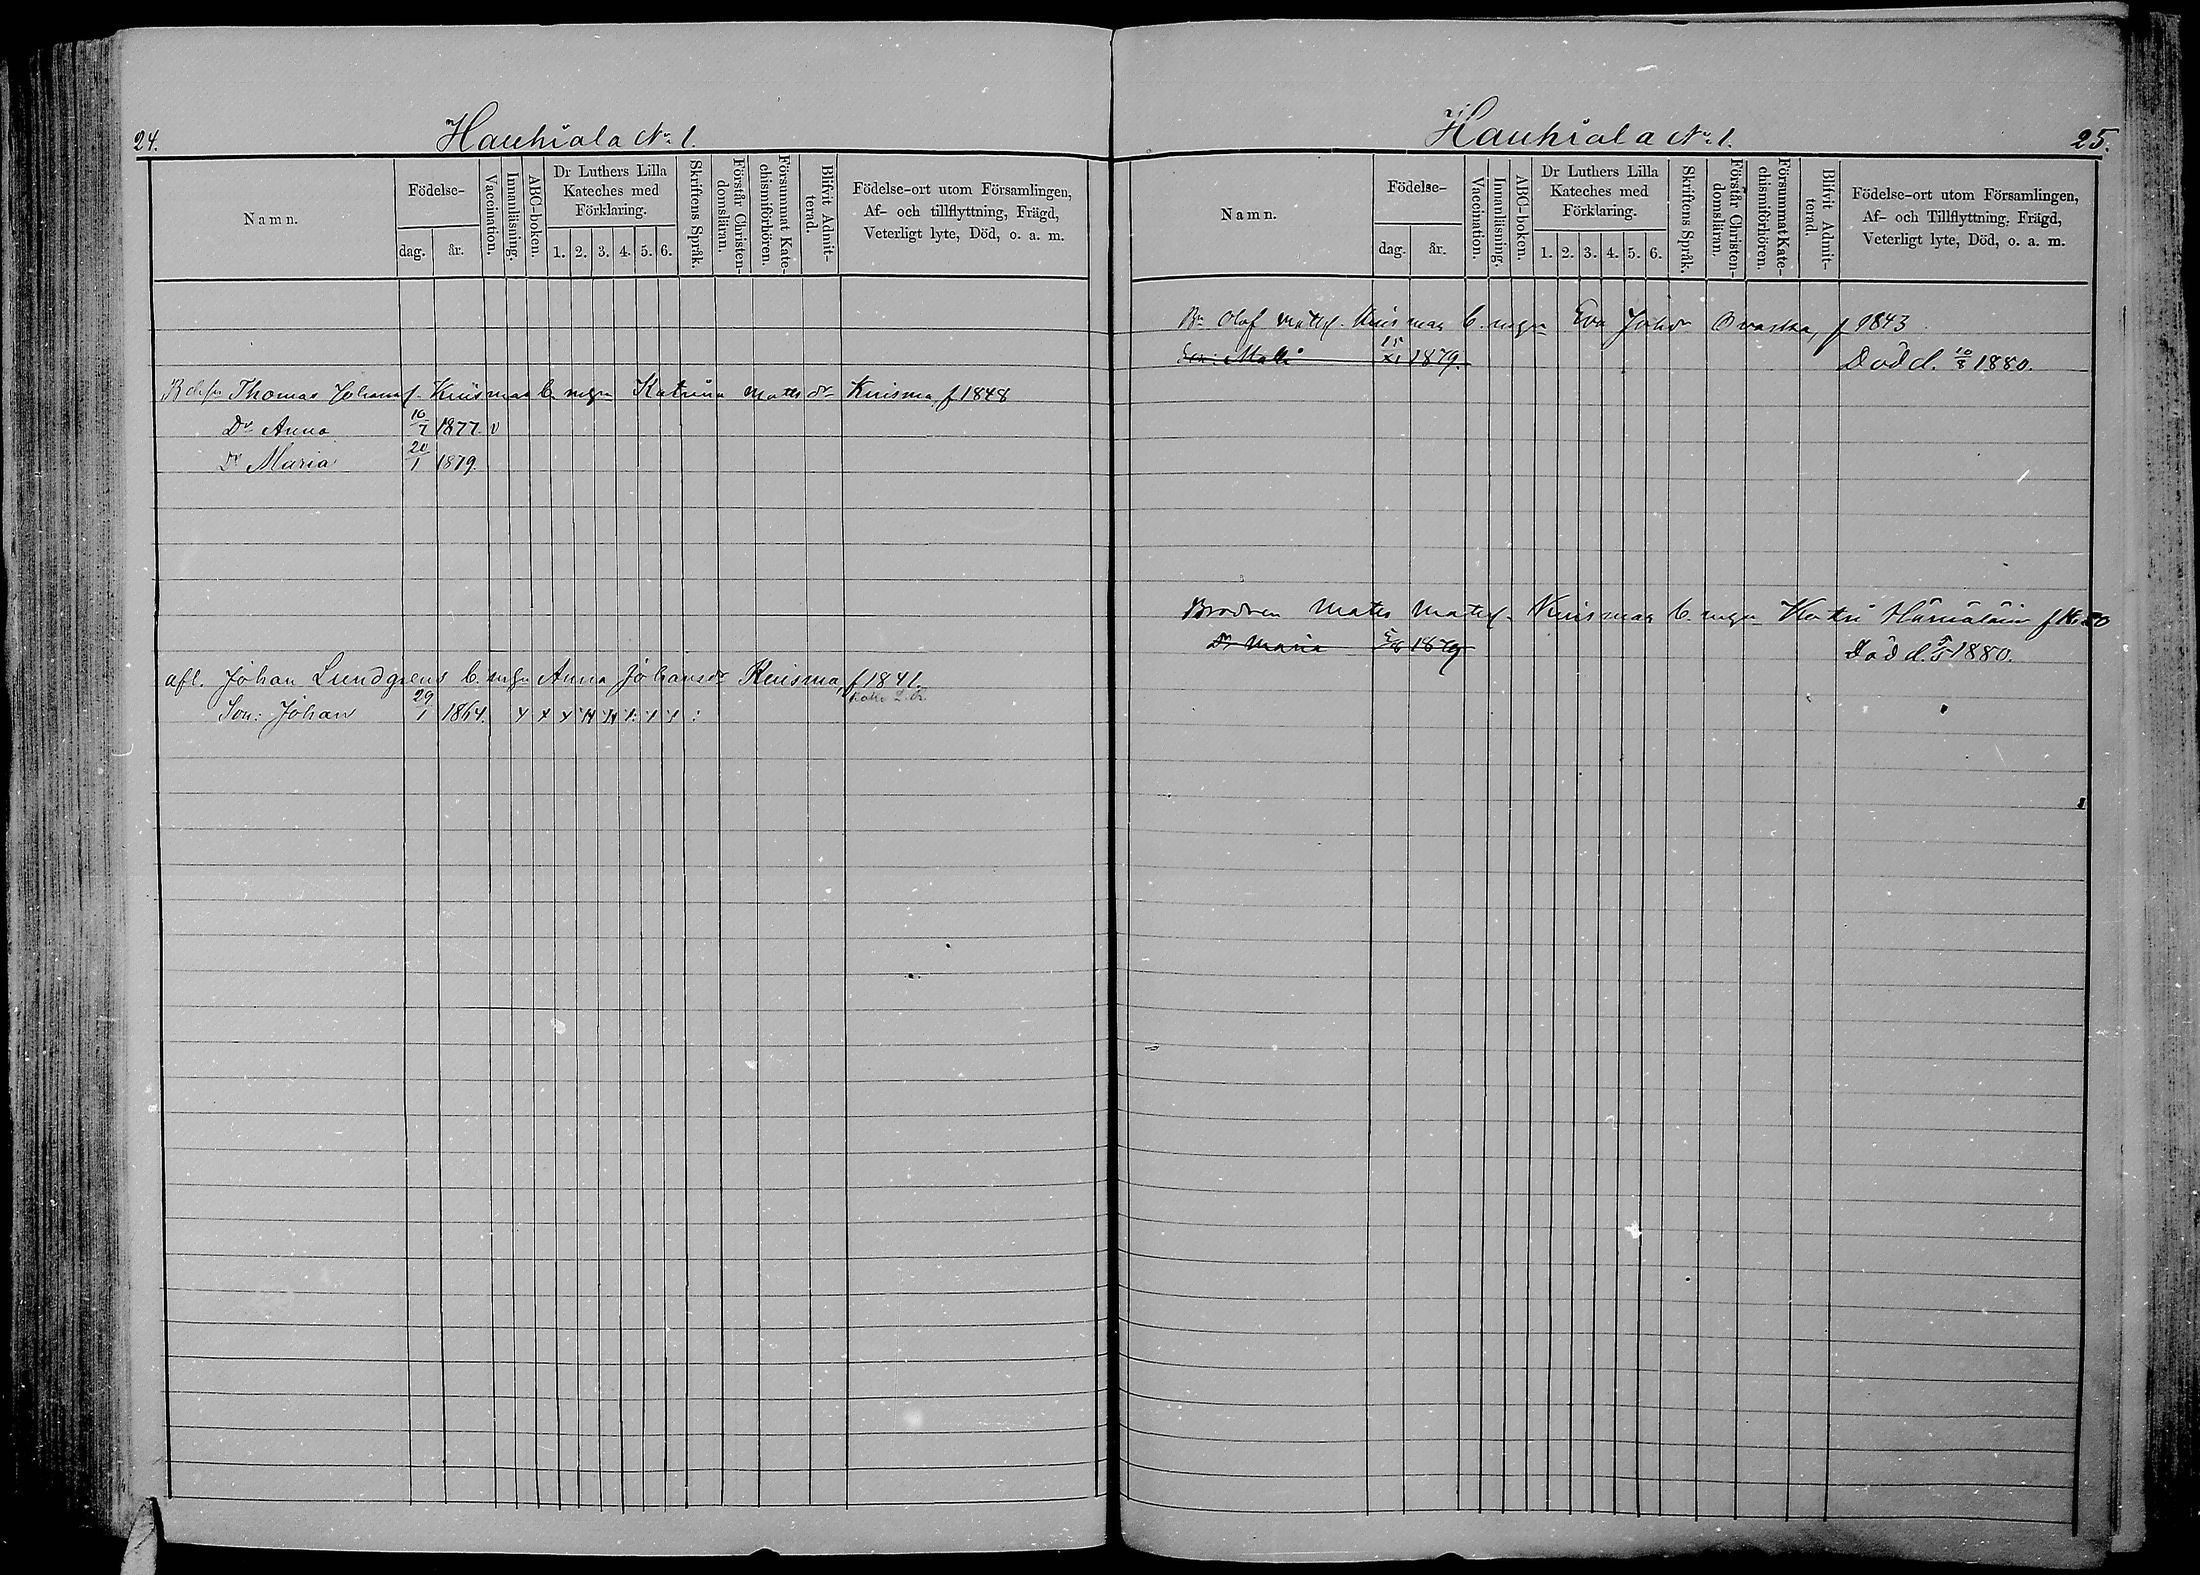 24.
Hauhiala No 1.
Namn.
Födelse-
dag.
år.
Vaccination.
Innanläsning.
ABC-boken.
Dr Luthers Lilla
Kateches med
Förklaring.
1. 2. 3. 4. 5. 6.
Skriftens Språk.
Förstår Christen-
domsläran.
Försummat Kate-
chismiförhören.
Blifvit Admit-
terad.
Födelse-ort utom Församlingen,
Af- och tillflyttning, Frägd,
Veterligt lyte, Död, o. a. m.
Thomas Johansf. Kuismas b. m. hu Katrina Matts dr Kuisma, f 1848
Dr Anna 10/7 1877. v
Dr Maria 20/1 1879.
afl. Johan Lundgrens b. m. hu Anna Johansdr Kuisma, f 1841.
Son: Johan 29/1 1864.
Hauhiala No 1.
25.
Namn.
Födelse-
dag.
år.
Vaccination.
Innanläsning.
ABC-boken.
Dr Luthers Lilla
Kateches med
Förklaring.
1. 2. 3. 4. 5. 6.
Skriftens Språk.
Förstår Christen-
domsläran.
Försummat Kate-
chismiförhören.
Blifvit Admit-
terad.
Födelse-ort utom Församlingen,
Af- och Tillflyttning, Frägd,
Veterligt lyte, Död, o. a. m.
Br Olof Mattsf. Kuismas b. m. hu Eva Johdr Ovaska, f 1843
Son: Matti 15/XI 1879. Död d. 10/8 1880.
Brodren Matts Mattsf. Kuismas b. m. hu Katri Hämäläin f 1850
Dr Maria 1879 Död d. 1880.